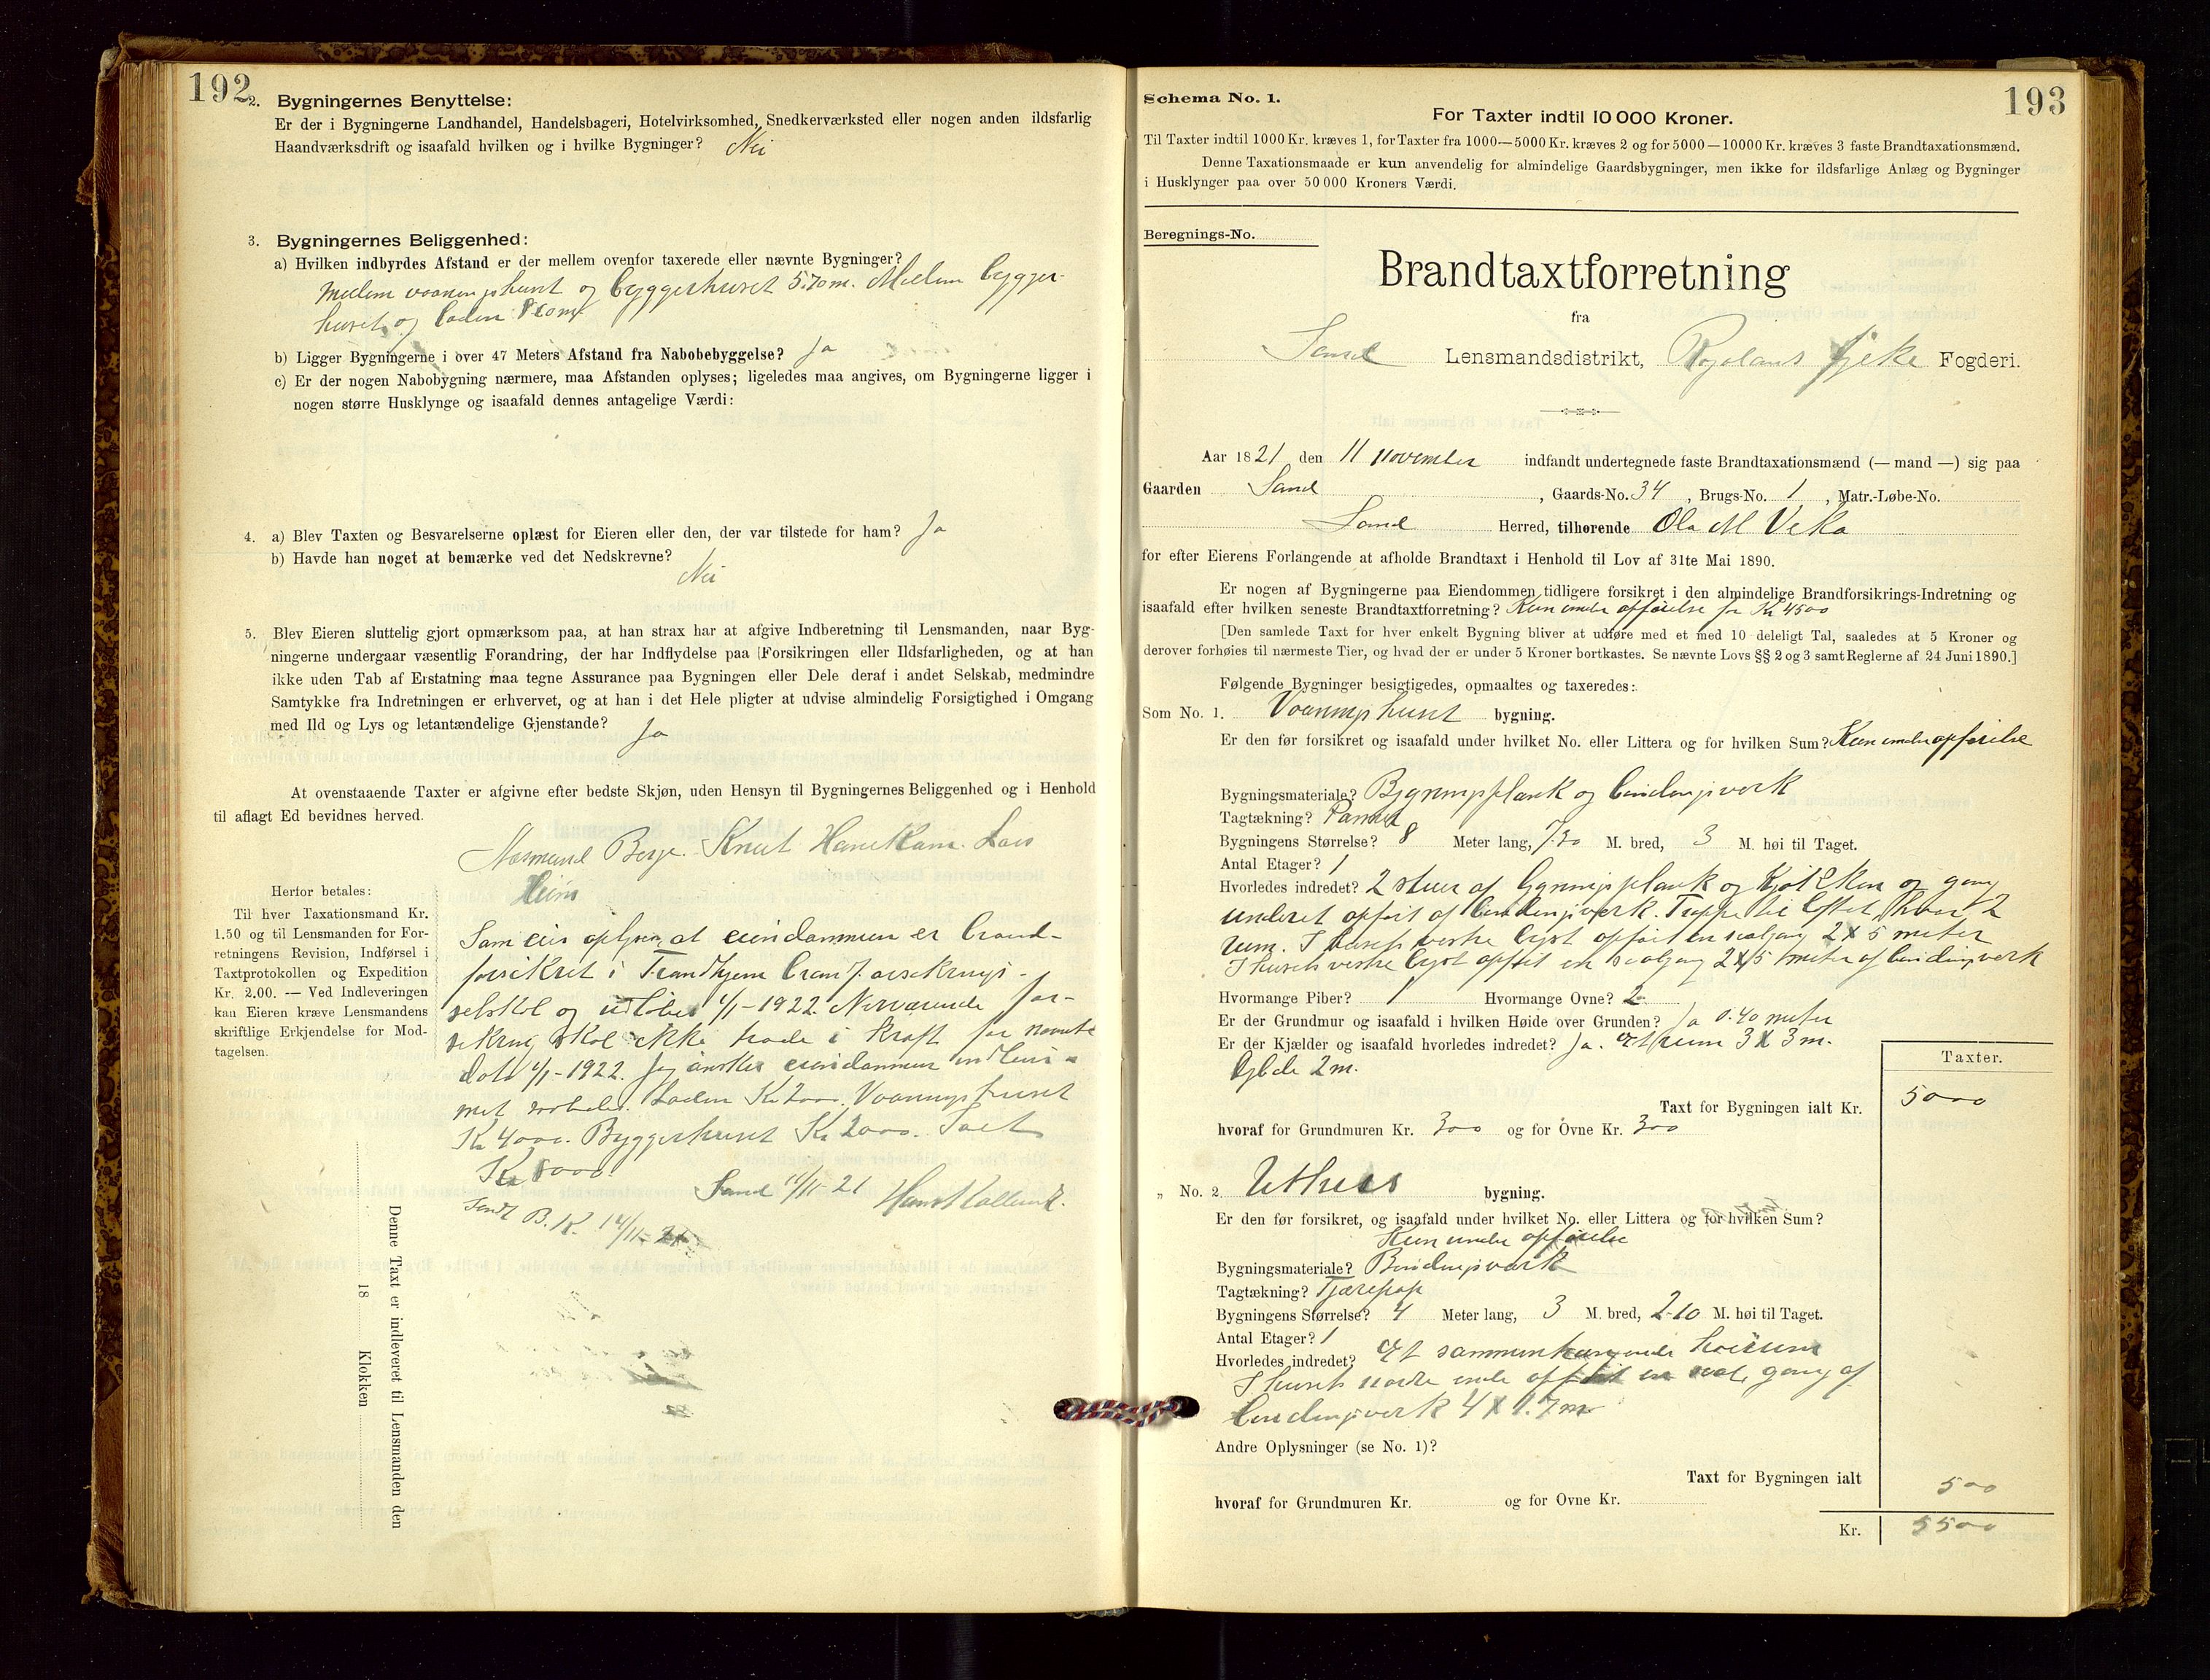 192
2. Bygningernes Benyttelse:
Er der i Bygningerne Landhandel, Handelsbageri, Hotelvirksomhed, Snedkerværksted eller nogen anden ildsfarlig
Haandværksdrift og isaafald hvilken og i hvilke Bygninger? Nei
3. Bygningernes Beliggenhed:
a) Hvilken indbyrdes Afstand er der mellem ovenfor taxerede eller nævnte Bygninger?
Mellem vaaningshuset og byggerhuset 5.70 m. Mellem bygger-
huset og laden
b) Ligger Bygningerne i over 47 Meters Afstand fra Nabobebyggelse? Ja
c) Er der nogen Nabobygning nærmere, maa Afstanden oplyses; ligeledes maa angives, om Bygningerne ligger i
nogen større Husklynge og isaafald dennes antagelige Værdi:
4. a) Blev Taxten og Besvarelserne oplæst for Eieren eller den, der var tilstede for ham? Ja
b) Havde han noget at bemærke ved det Nedskrevne?
Nei
5. Blev Eieren sluttelig gjort opmærksom paa, at han strax har at afgive Indberetning til Lensmanden, naar Byg-
ningerne undergaar væsentlig Forandring, der har Indflydelse paa Forsikringen eller Ildsfarligheden, og at han
ikke uden Tab af Erstatning maa tegne Assurance paa Bygningen eller Dele deraf i andet Selskab, medmindre
Samtykke fra Indretningen er erhvervet, og at han i det Hele pligter at udvise almindelig Forsigtighed i Omgang
med Ild og Lys og letantændelige Gjenstande? Ja
At ovenstaaende Taxter er afgivne efter bedste Skjøn, uden Hensyn til Bygningernes Beliggenhed og i Henhold
til aflagt Ed bevidnes herved.
Berge. Knut Lars
Heim
Herfor betales:
Til hver Taxationsmand Kr.
1.50 og til Lensmanden for For-
retningens Revision, Indførsel i
Taxtprotokollen og Expedition
Kr. 2.00. — Ved Indleveringen
kan Eieren kræve Lensmandens
skriftlige Erkjendelse for Mod-
tagelsen.
Som eier oplyses at eiendommen er brand-
forsikret i Trondhjem brandforsikrings-
selskab og utløber 1/1-1922. Nærværende for-
sikring skal ikke træde i kraft før nævnte
dato 1/1-1922. Jeg ønsker eiendommen
Laden Kr 2000. Vaaningshuset
Kr 4000. Byggerhuset Kr 2000. Talt
Kr 8000.
Sand 11/11-21
Sendt B. K. 14/11-21
Denne Taxt er indleveret til Lensmanden den
18 Klokken
193
Schema No. 1.
For Taxter indtil 10 000 Kroner.
Til Taxter indtil 1000 Kr. kræves 1, for Taxter fra 1000—5000 Kr. kræves 2 og for 5000—10000 Kr. kræves 3 faste Brandtaxationsmænd.
Denne Taxationsmaade er kun anvendelig for almindelige Gaardsbygninger, men ikke for ildsfarlige Anlæg og Bygninger
i Husklynger paa over 50 000 Kroners Værdi.
Beregnings-No.
Brandtaxtforretning
fra
Sand Lensmandsdistrikt, Rogaland fylke Fogderi.
Aar 1821 den 11 november indfandt undertegnede faste Brandtaxationsmænd (— mand —) sig paa
Gaarden Sand, Gaards-No. 34, Brugs-No. 1, Matr.-Løbe-No.
Sand Herred, tilhørende Ola M Veka
for efter Eierens Forlangende at afholde Brandtaxt i Henhold til Lov af 31te Mai 1890.
Er nogen af Bygningerne paa Eiendommen tidligere forsikret i den almindelige Brandforsikrings-Indretning og
isaafald efter hvilken seneste Brandtaxtforretning? Kun under opførelse for Kr 4500
[Den samlede Taxt for hver enkelt Bygning bliver at udføre med et med 10 deleligt Tal, saaledes at 5 Kroner og
derover forhøies til nærmeste Tier, og hvad der er under 5 Kroner bortkastes. Se nævnte Lovs §§ 2 og 3 samt Reglerne af 24 Juni 1890.]
Følgende Bygninger besigtigedes, opmaaltes og taxeredes:
Som No. 1. Vaaningshuset bygning.
Er den før forsikret og isaafald under hvilket No. eller Littera og for hvilken Sum? Kun under opførelse
Bygningsmateriale? Bygningsplank og bindingsverk
Tagtækning? Panner
Bygningens Størrelse? 8 Meter lang, 7.30 M. bred, 3 M. høi til Taget.
Antal Etager? 1
Hvorledes indredet? 2 stuer af bygningsplank og kjøkken og gang
underet opført af bindingsverk. Trappe til loftet, hvor 2
rum. I husets vestre lyst opført en svalgang 2 X 5 meter
I husets vestre lyst opført en svalgang 2 X 5 meter af bindingsverk
Hvormange Piber? 1 Hvormange Ovne? 2
Er der Grundmur og isaafald i hvilken Høide over Grunden? Ja 0.40 meter
Er der Kjælder og isaafald hvorledes indredet? Ja. Et rum 3 X 3 m.
Dybde 2 m.
Taxter.
Taxt for Bygningen ialt Kr. 5000
hvoraf for Grundmuren Kr. 300 og for Ovne Kr. 300
„ No. 2. Uthus bygning.
Er den før forsikret, og isaafald under hvilket No. eller Littera og for hvilken Sum?
Kun under opførelse
Bygningsmateriale? Bindingsverk
Tagtækning? Tjærepap
Bygningens Størrelse? 4 Meter lang, 3 M. bred, 2.10 M. høi til Taget.
Antal Etager? 1
Hvorledes indredet? Et sammenhængende
I husets nordre ende opført en svalgang af
bindingsverk 4 X 1.7 m
Andre Oplysninger (se No. 1)?
Taxt for Bygningen ialt 500
hvoraf for Grundmuren Kr. og for Ovne Kr.
Kr. 5500